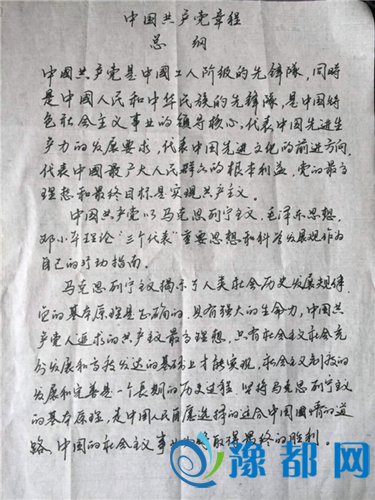 中国共产党章程
总纲
中國共产党是中國工人阶级的先锋隊，同時
是中國人民和中华民族的先锋隊，是中国特
色社会主义事业的领导核心，代表中国先进生
产力的发展要求，代表中国先进文化的前进方向，
代表中國最广大人民群众的根本利益，党的最高
理想和最终目标是实现共产主义。
中國共产党以马克思列宁主义，毛泽东思想，
邓小平理论"三个代表"重要思想和科学发展观作为
自己的行动指南。
马克思列宁主义揭示了人类社会历史发展规律，
它的基本原理是正确的，具有强大的生命力，中國共
产党人追求的共产主义最高理想，只有社会主义社会充
分发展和高度发达的基础上才能实现，社会主义制度的
发展和完善是一个長期的历史过程，坚持马克思列宁主义
的基本原理，走中國人民自愿选择的适合中国國情的道
路，中国的社会主义事业必将取得最终的胜利。
豫都网